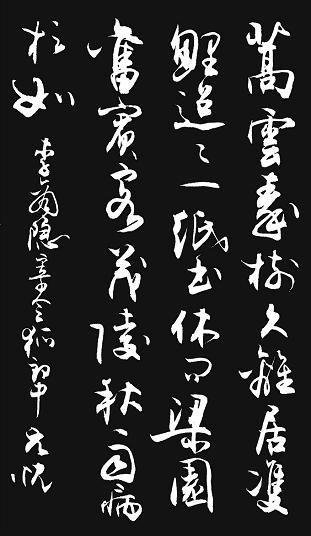 嵩雲秦樹久離居雙
鯉迢〻一紙書休問梁園
舊賓客茂陵秋雨病
相如 李商隐寄令狐郎中